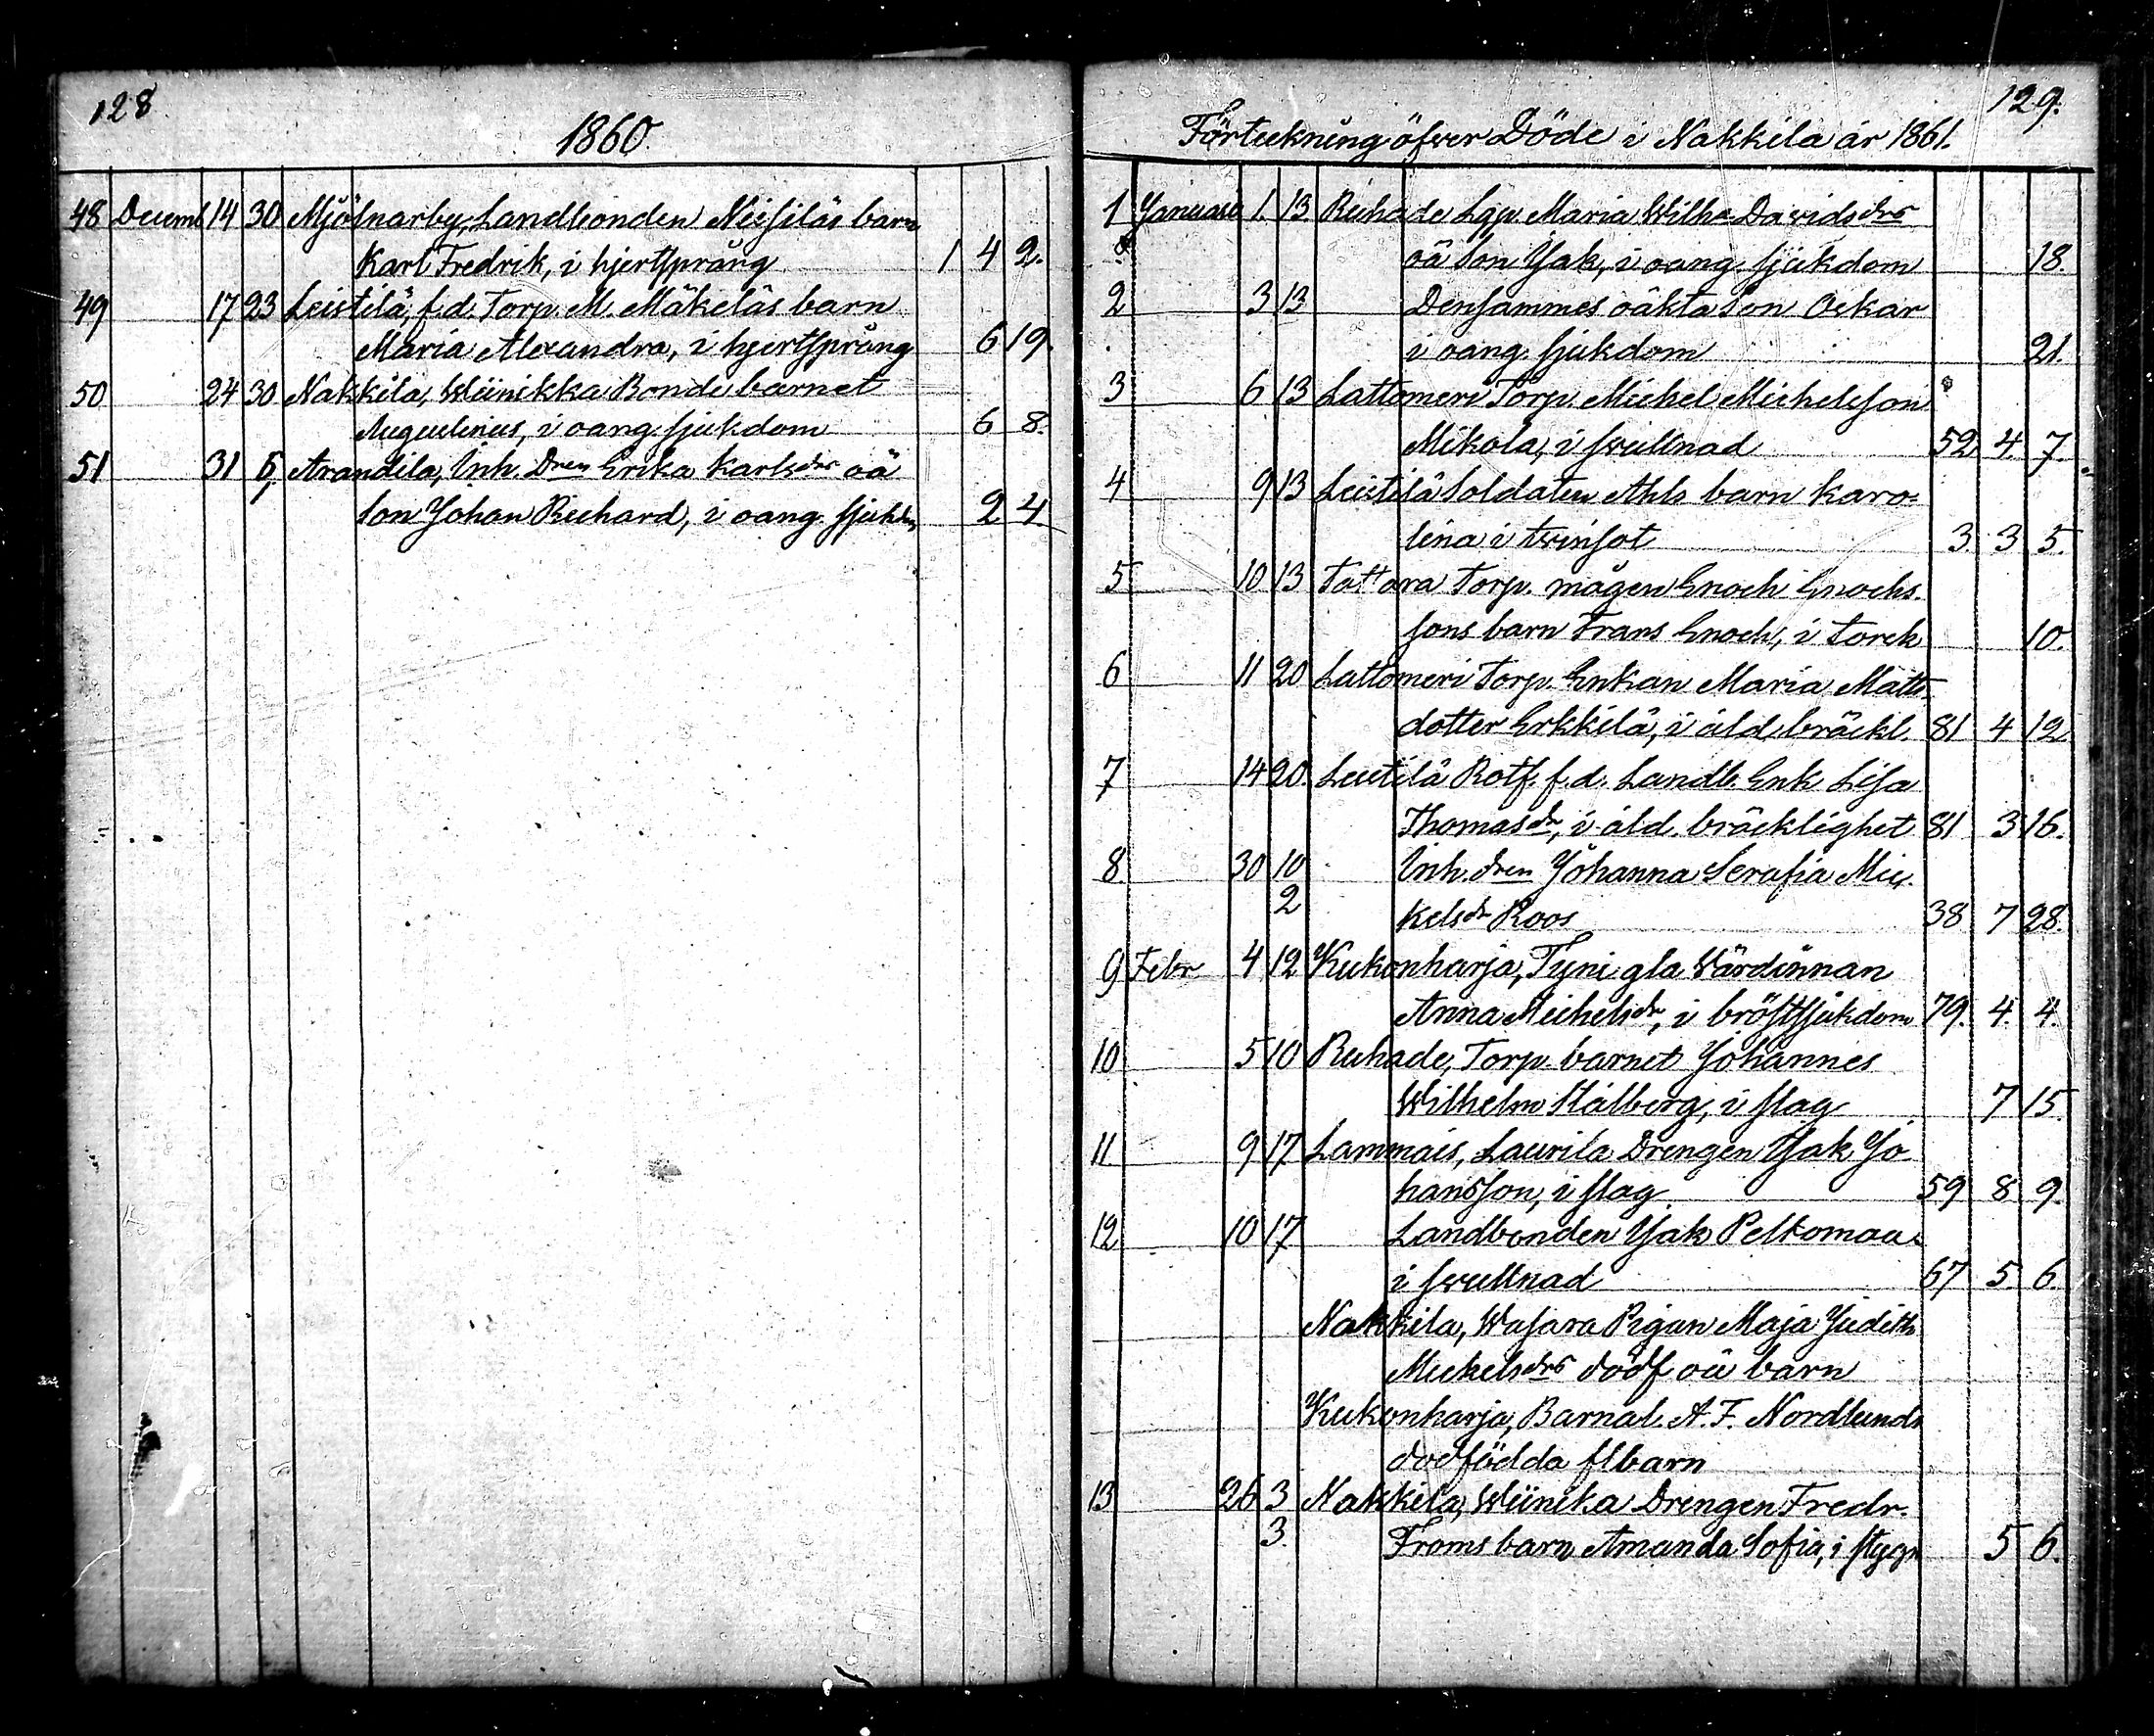 128
1860.
48 Decemb 14 30 Mjölnarby, Landbonden Neisiläs barn
Karl Fredrik, i hjertsprång 1 4 2.
49 17 23 Leistilä, f.d. Torp. M. Mäkeläs barn
Maria Alexandra, i hjertsprång 6 19.
50 24 30 Nakkila, Wiinikka Bonde barnet
Augustinus, i oang. sjukdom 6 8.
51 31 6 Arandila, Inh. Dren Erika Karlsdrs oä
son Johan Richard, i oang. sjukdm 2 4
129.
Förteckning öfver Döde i Nakkila år 1861.
1 Januari 1. 13 Ruhade Lgp. Maria Wilha Davidsdrs
oä son Isak, i oang. sjukdom 18.
2 3 13 Densammes oäkta son Oskar
i oang. sjukdom 21.
3 6 13 Lattomeri Torp. Michel Michelsson
Mikola, i svullnad 52 4. 7.
4 9 13 Leistilä Soldaten Ahls barn Karo=
lina i tvinsot 3 3 5.
5 10 13 Tattara Torp. mågen Enoch Enochs-
sons barn Frans Enoch, i torsk 10.
6 11 20 Lattomeri Torp. Enkan Maria Matts-
dotter Erkkilä, i åld. bräckl. 81 4 12
7 14 20. Leistilä Rotf. f.d. Landb. Enk Lisa
Thomasdr, i åld. bräcklighet 81 3 16.
8 30 10 Inh. dren Johanna Serafia Mic-
2 kelsdr Roos 38 7 28.
9 Febr 4 12 Kukonharja, Tyni gla Värdinnan
Anna Michelsdr, i bröstsjukdom 79. 4. 4.
10 5 10 Ruhade, Torp. barnet Johannes
Wilhelm Stålberg, i slag 7 15
11 9 17 Lammais, Laurila Drengen Isak Jo
hansson, i slag 59 8 9.
12 10 17 Landbonden Isak Peltomaa
i svullnad 67 5 6.
Nakkila, Wasara Pigan Maja Judith
Mickelsdrs dödf oä barn
Kukonharja, Barnal. A. F. Nordlunds
dödfödda flbarn
13 26 3 Nakkila, Wiinika Drengen Fredr.
3. Froms barn Amanda Sofia, i stygn 5 6.